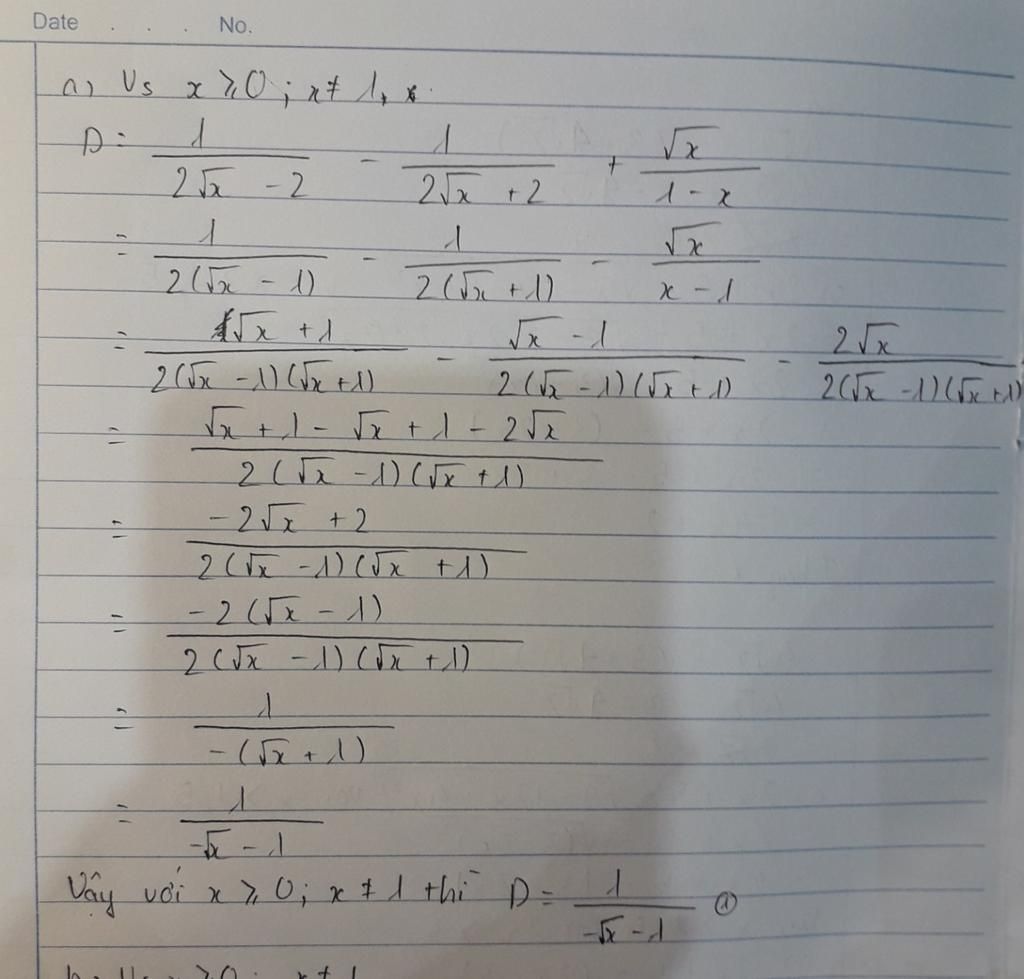 Date . . . No.
a) Vs x ⩾ 0 ; x ≠ 1,
D = 1/(2√x - 2) - 1/(2√x + 2) + √x/(1 - x)
= 1/(2(√x - 1)) - 1/(2(√x + 1)) - √x/(x - 1)
= (√x + 1)/(2(√x - 1)(√x + 1)) - (√x - 1)/(2(√x - 1)(√x + 1)) - 2√x/(2(√x - 1)(√x + 1))
= (√x + 1 - √x + 1 - 2√x)/(2(√x - 1)(√x + 1))
= (-2√x + 2)/(2(√x - 1)(√x + 1))
= (-2(√x - 1))/(2(√x - 1)(√x + 1))
= 1/(-(√x + 1))
= 1/(-√x - 1)
Vậy với x ⩾ 0 ; x ≠ 1 thì D = 1/(-√x - 1) ①